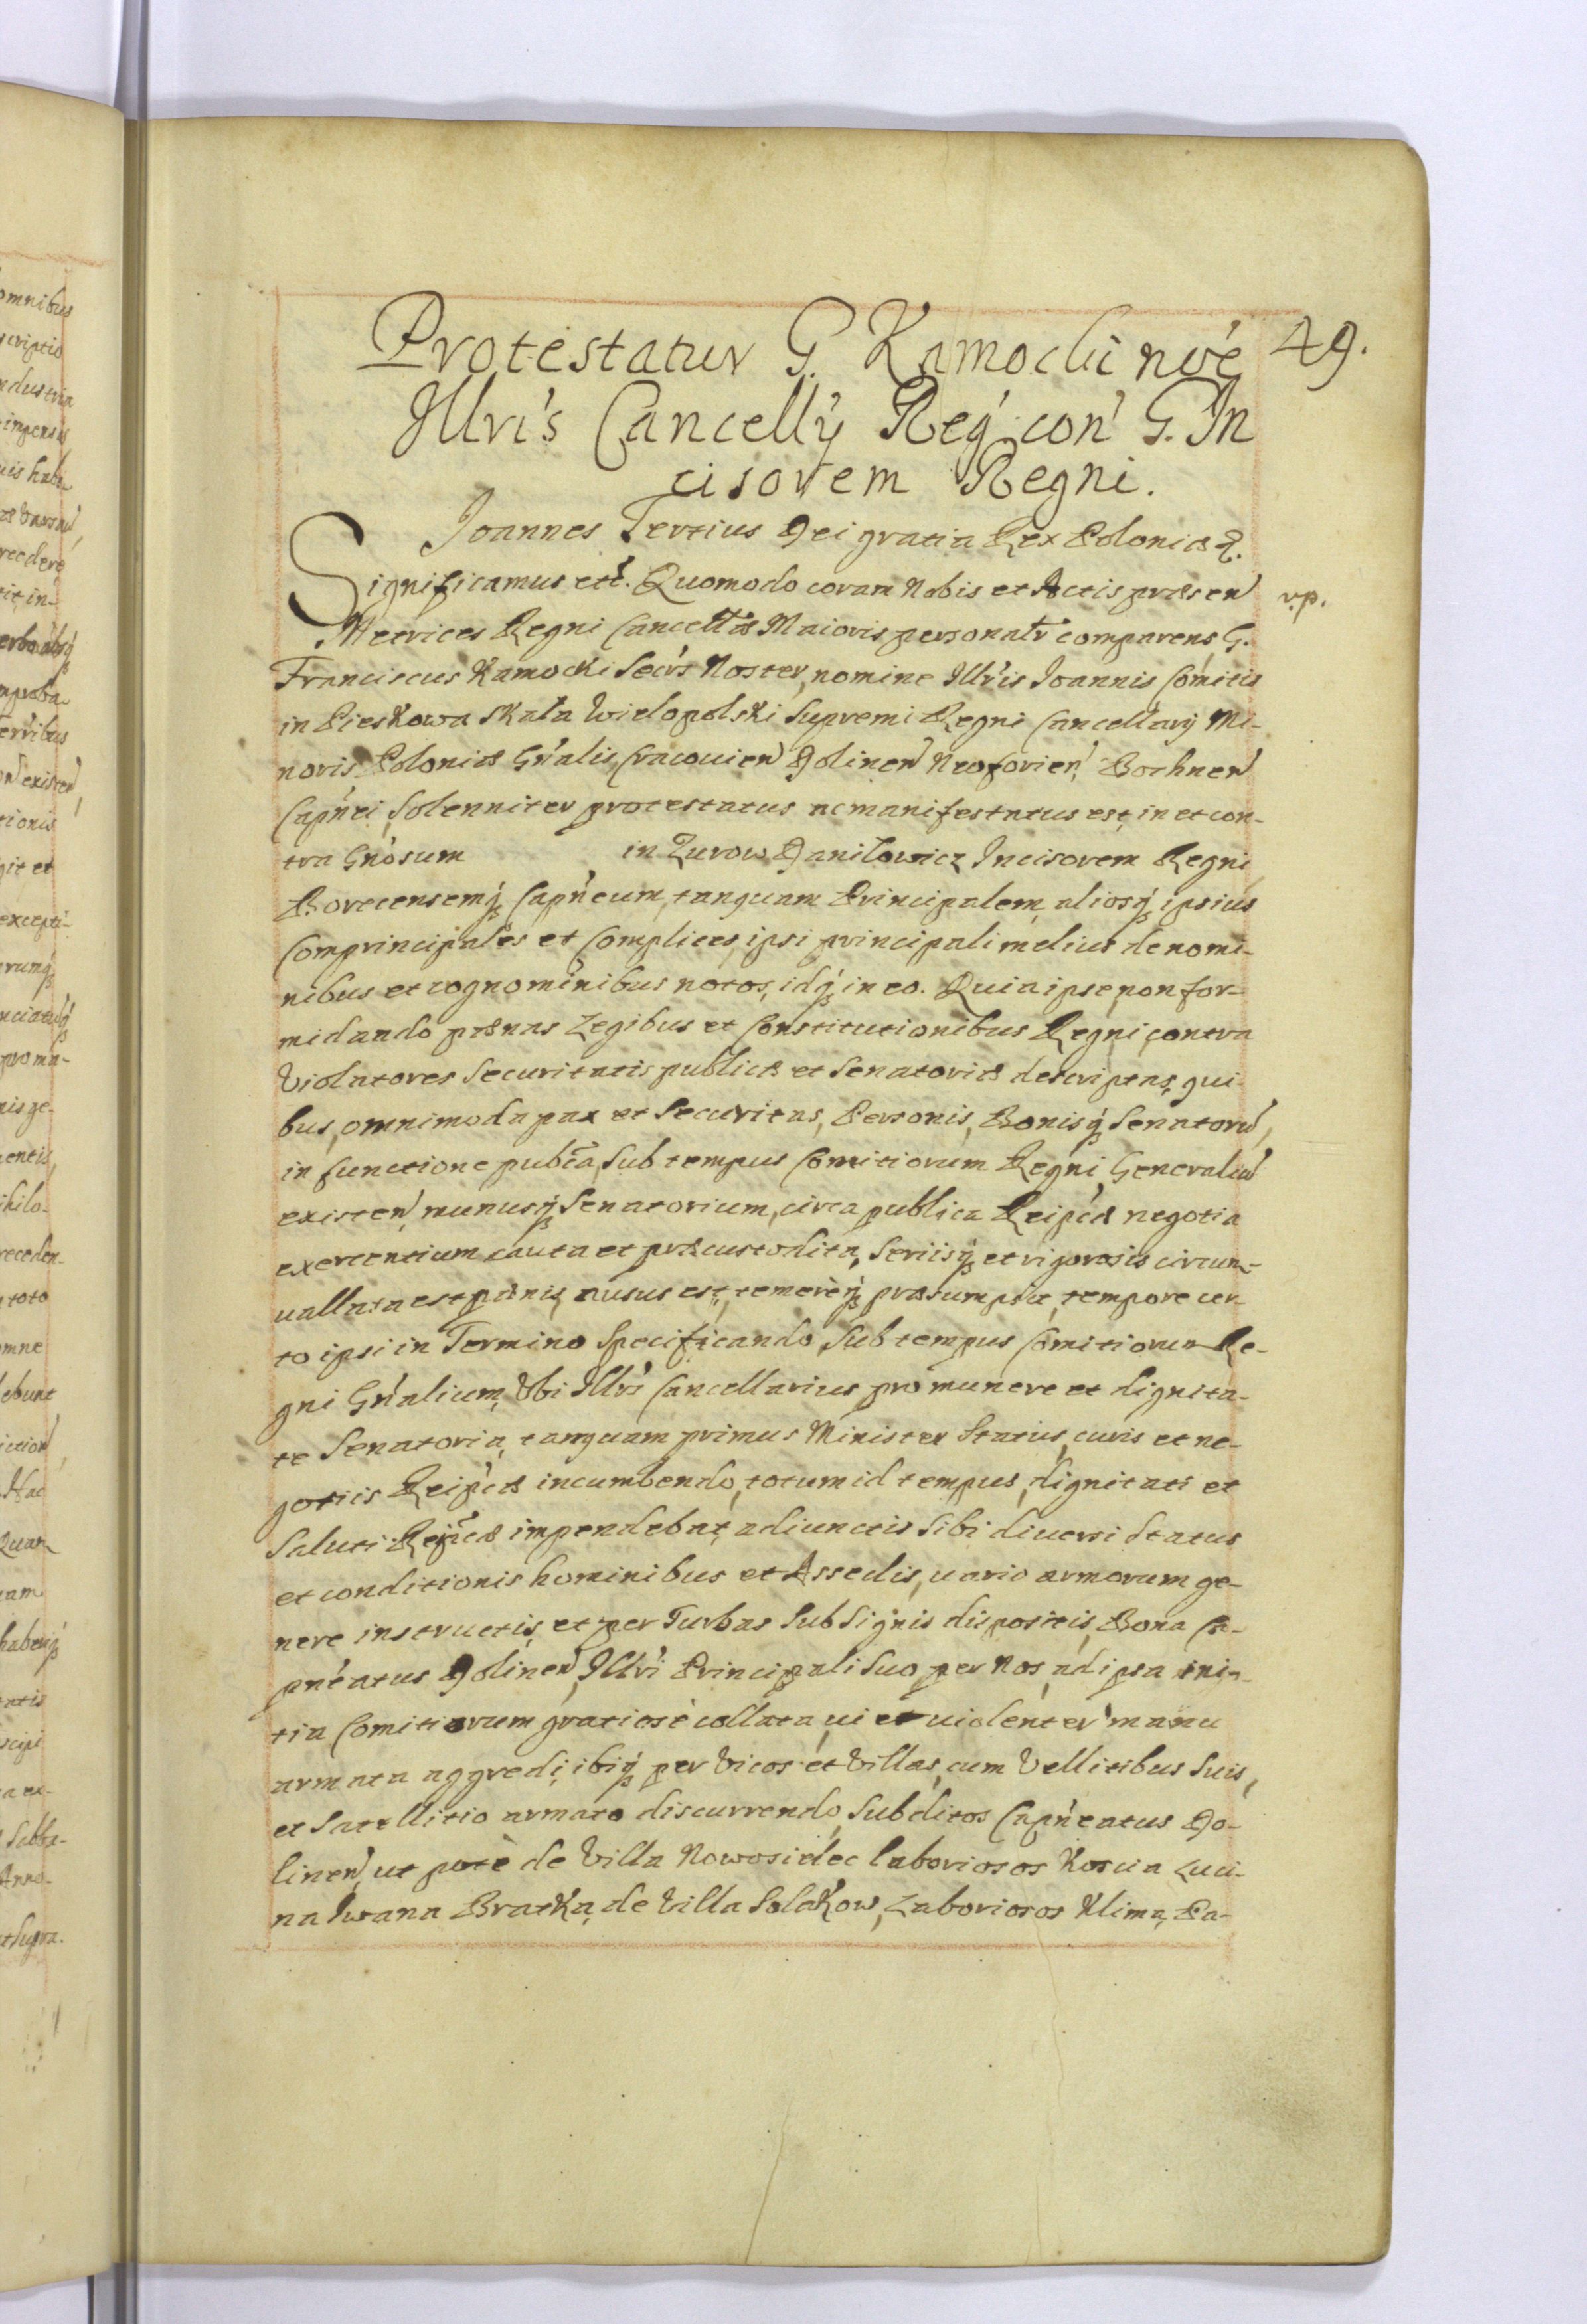 49.
Protestatur G. Kamocki noé
Illri's Cancellÿ Reg' con' G. In
cisorem Regni.
Joannes Tertius Dei gratia Rex Poloniæ &.
Significamus ett. Quomodo coram Nobis et Actis præsen
v.p.
Metrices Regni Cancellæ Maioris personalr comparens G.
Franciscus Kamocki Secrs Noster, nomine Illris Joannis Comitis
in Pieskowa Skała Wielopolski Supremi Regni Cancellarÿ Mi-
noris Poloniæ Gñalis, Cracovien Dolinen Neoforien, Bochnen
Capñei, Solenniter protestatus ac manifestatus est, in et con-
tra Gnosum in Zurow Daniłowicz Incisorem Regni,
Borecensemq Capñeum, tanquam Principalem, aliosq ipsius
Comprincipales et Complices, ipsi principali melius de nomi-
nibus et cognominibus notos, idq in eo. Quia ipse, non for-
midando pænas Legibus et Constitutionibus Regni, contra
Violatores Securitatis publicæ et Senatoriæ descriptas, qui-
bus, omnimoda pax et Securitas, Personis, Bonisq Senatorū,
in functione pubca, Sub tempus Comitiorum Regni Generaliū
existen, munusq Senatorium, circa publica Reipcæ negotia
exercentium cauta et præcustodita, Seriisq et rigorosis circum-
uallata est pænis, ausus est, temerèq præsumpsit, tempore cer-
to ipsi in Termino Specificando, Sub tempus Comitiorum Re-
gni Gñalium, Vbi Illris Cancellarius pro munere et dignita-
te Senatoria, tanquam primus Minister Status, curis et ne-
gotiis Reipcæ incumbendo, totum id tempus, dignitati et
Saluti Reipcæ impendebat, adiunctis Sibi diuersi Status
et conditionis hominibus et Asseclis, uario armorum ge-
nere instructis, et per Turbas Sub Signis dispositis, Bona Ca-
pñeatus Dolinen, Illri Principali Suo per Nos, ad ipsa ini-
tia Comitiorum gratiosè collata, ui et uiolenter manu
armata aggredi, ibiq per Vicos et Villas, cum Vellitibus Suis,
et Satellitio armato discurrendo, Subditos Capñeatus Do-
linen, ut potè de Villa Nowosielec laboriosos Koscia Luci-
na Iwana Bratka, de Villa Solakow, Laboriosos Klima, Pa-